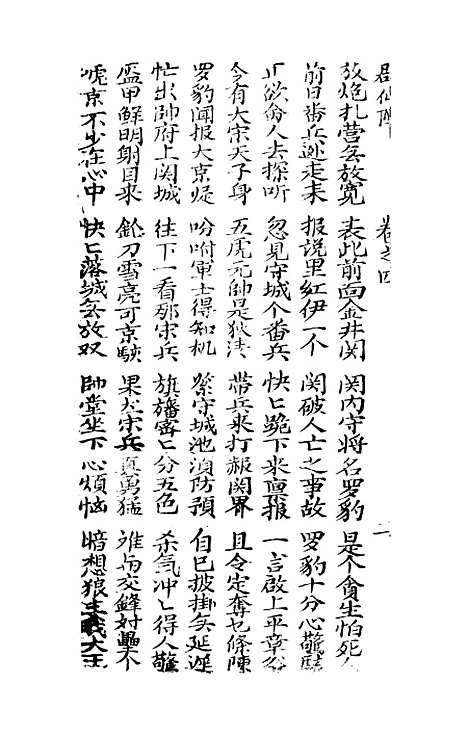 羣仙陣 卷之四 二
放炮扎营無放宽 表此前面金井関 関内守将名罗豹 是个貪生怕死
前日番兵逃走来 报說里紅伊一个 関破人亡之事故 罗豹十分心驚駭
欲命人去探听 忽見守城个番兵 快匕跪下来禀报 一言啟上平章爷
今有大宋天子身 五虎元帥是狄清 帶兵来打報関界 且令定奪乜條陳
罗豹闻报大京疑 吩咐軍士得知机 緊守城池湏防預 自已披掛無延遲
忙出帥府上関城 往下一看那宋兵 旗旛密匕分五色 杀氣冲匕得人驚
盔甲鮮明射目来 鎗刀雪亮可京駭 果然宋兵真勇猛 难与交鋒对壘个
唬京不少在心中 快匕落城無放双 帥堂坐下心煩惱 暗想狼主大王